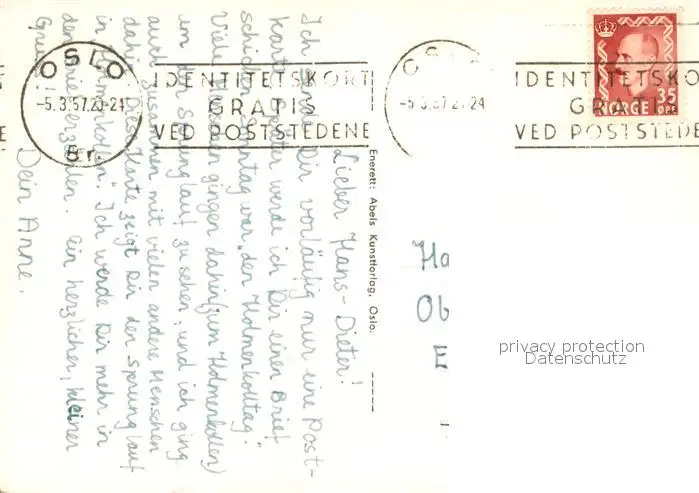 OSLO
-5.3.57.20-24
Br.
IDENTITETSKORT
GRATIS
VED POSTSTEDENE
OSLO
-5.3.57.20-24
IDENTITETSKO
GRATIS
VED POSTSTEDE
NORGE 35
ØRE
Enerett: Abels Kunstforlag, Oslo.
Lieber Hans-Dieter!
Ich sende Dir vorläufig nur eine Post-
karte, später werde ich Dir einen Brief
schicken. Sonntag war "den Holmenkolltag".
Viele Menschen gingen dahin (zum Holmenkollen)
um den Sprunglauf zu sehen, und ich ging
auch zusammen mit vielen andere Menschen
dahin. Diese Karte zeigt Dir der Sprunglauf
in "Holmenkollen". Ich werde Dir mehr in
dem Brief erzählen. Ein herzlicher, kleiner
Gruss!
Dein Anne.
Ha
Ob
E
privacy protection
Datenschutz